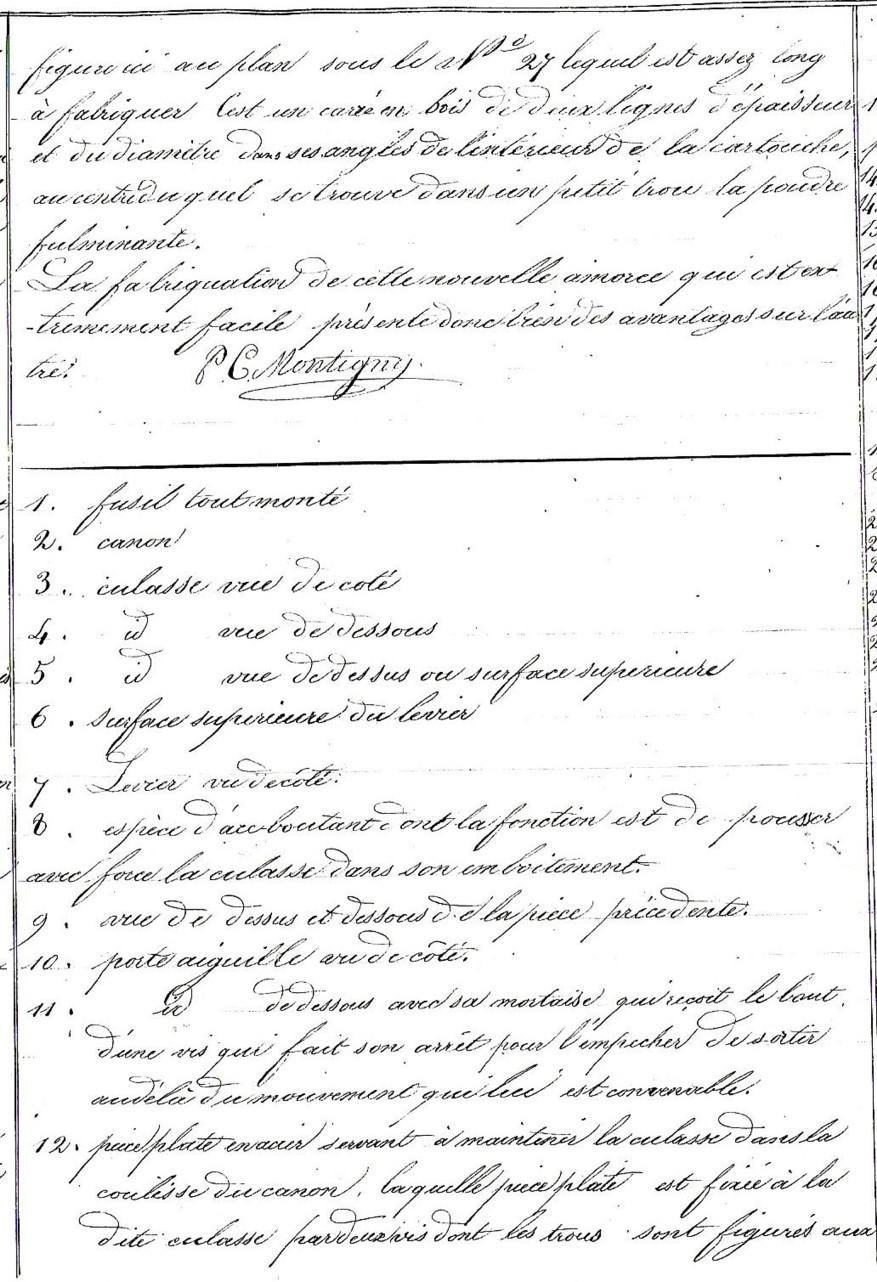 figure ici au plan sous le N° 27 lequel est assez long
à fabriquer C'est un carré en bois de deux lignes d'épaisseur
et du diamètre dans ses angles de l'intérieur de la cartouche,
au centre duquel se trouve dans un petit trou la poudre
fulminante.
La fabriquation de cette nouvelle amorce qui est ex-
-trèmement facile présente donc bien des avantages sur l'au
tre.
P C Montigny.
1. fusil tout monté
2. canon
3. culasse vue de coté
4. id vue de dessous
5. id vue de dessus ou surface superieure
6. surface superieure du levier
7. Levier vu de côté.
8. espèce d'arc boutant dont la fonction est de pousser
avec force la culasse dans son emboitement.
9. vue de dessus et dessous de la pièce précedente.
10. porte aiguille vu de côté.
11. id de dessous avec sa mortaise qui reçoit le bout
d'une vis qui fait son arrêt pour l'empecher de sortir
au délà du mouvement qui lui est convenable.
12. pièce plate en acier servant à maintenir la culasse dans la
coulisse du canon, laquelle pièce plate est fixée à la
dite culasse par deux vis dont les trous sont figurés aux